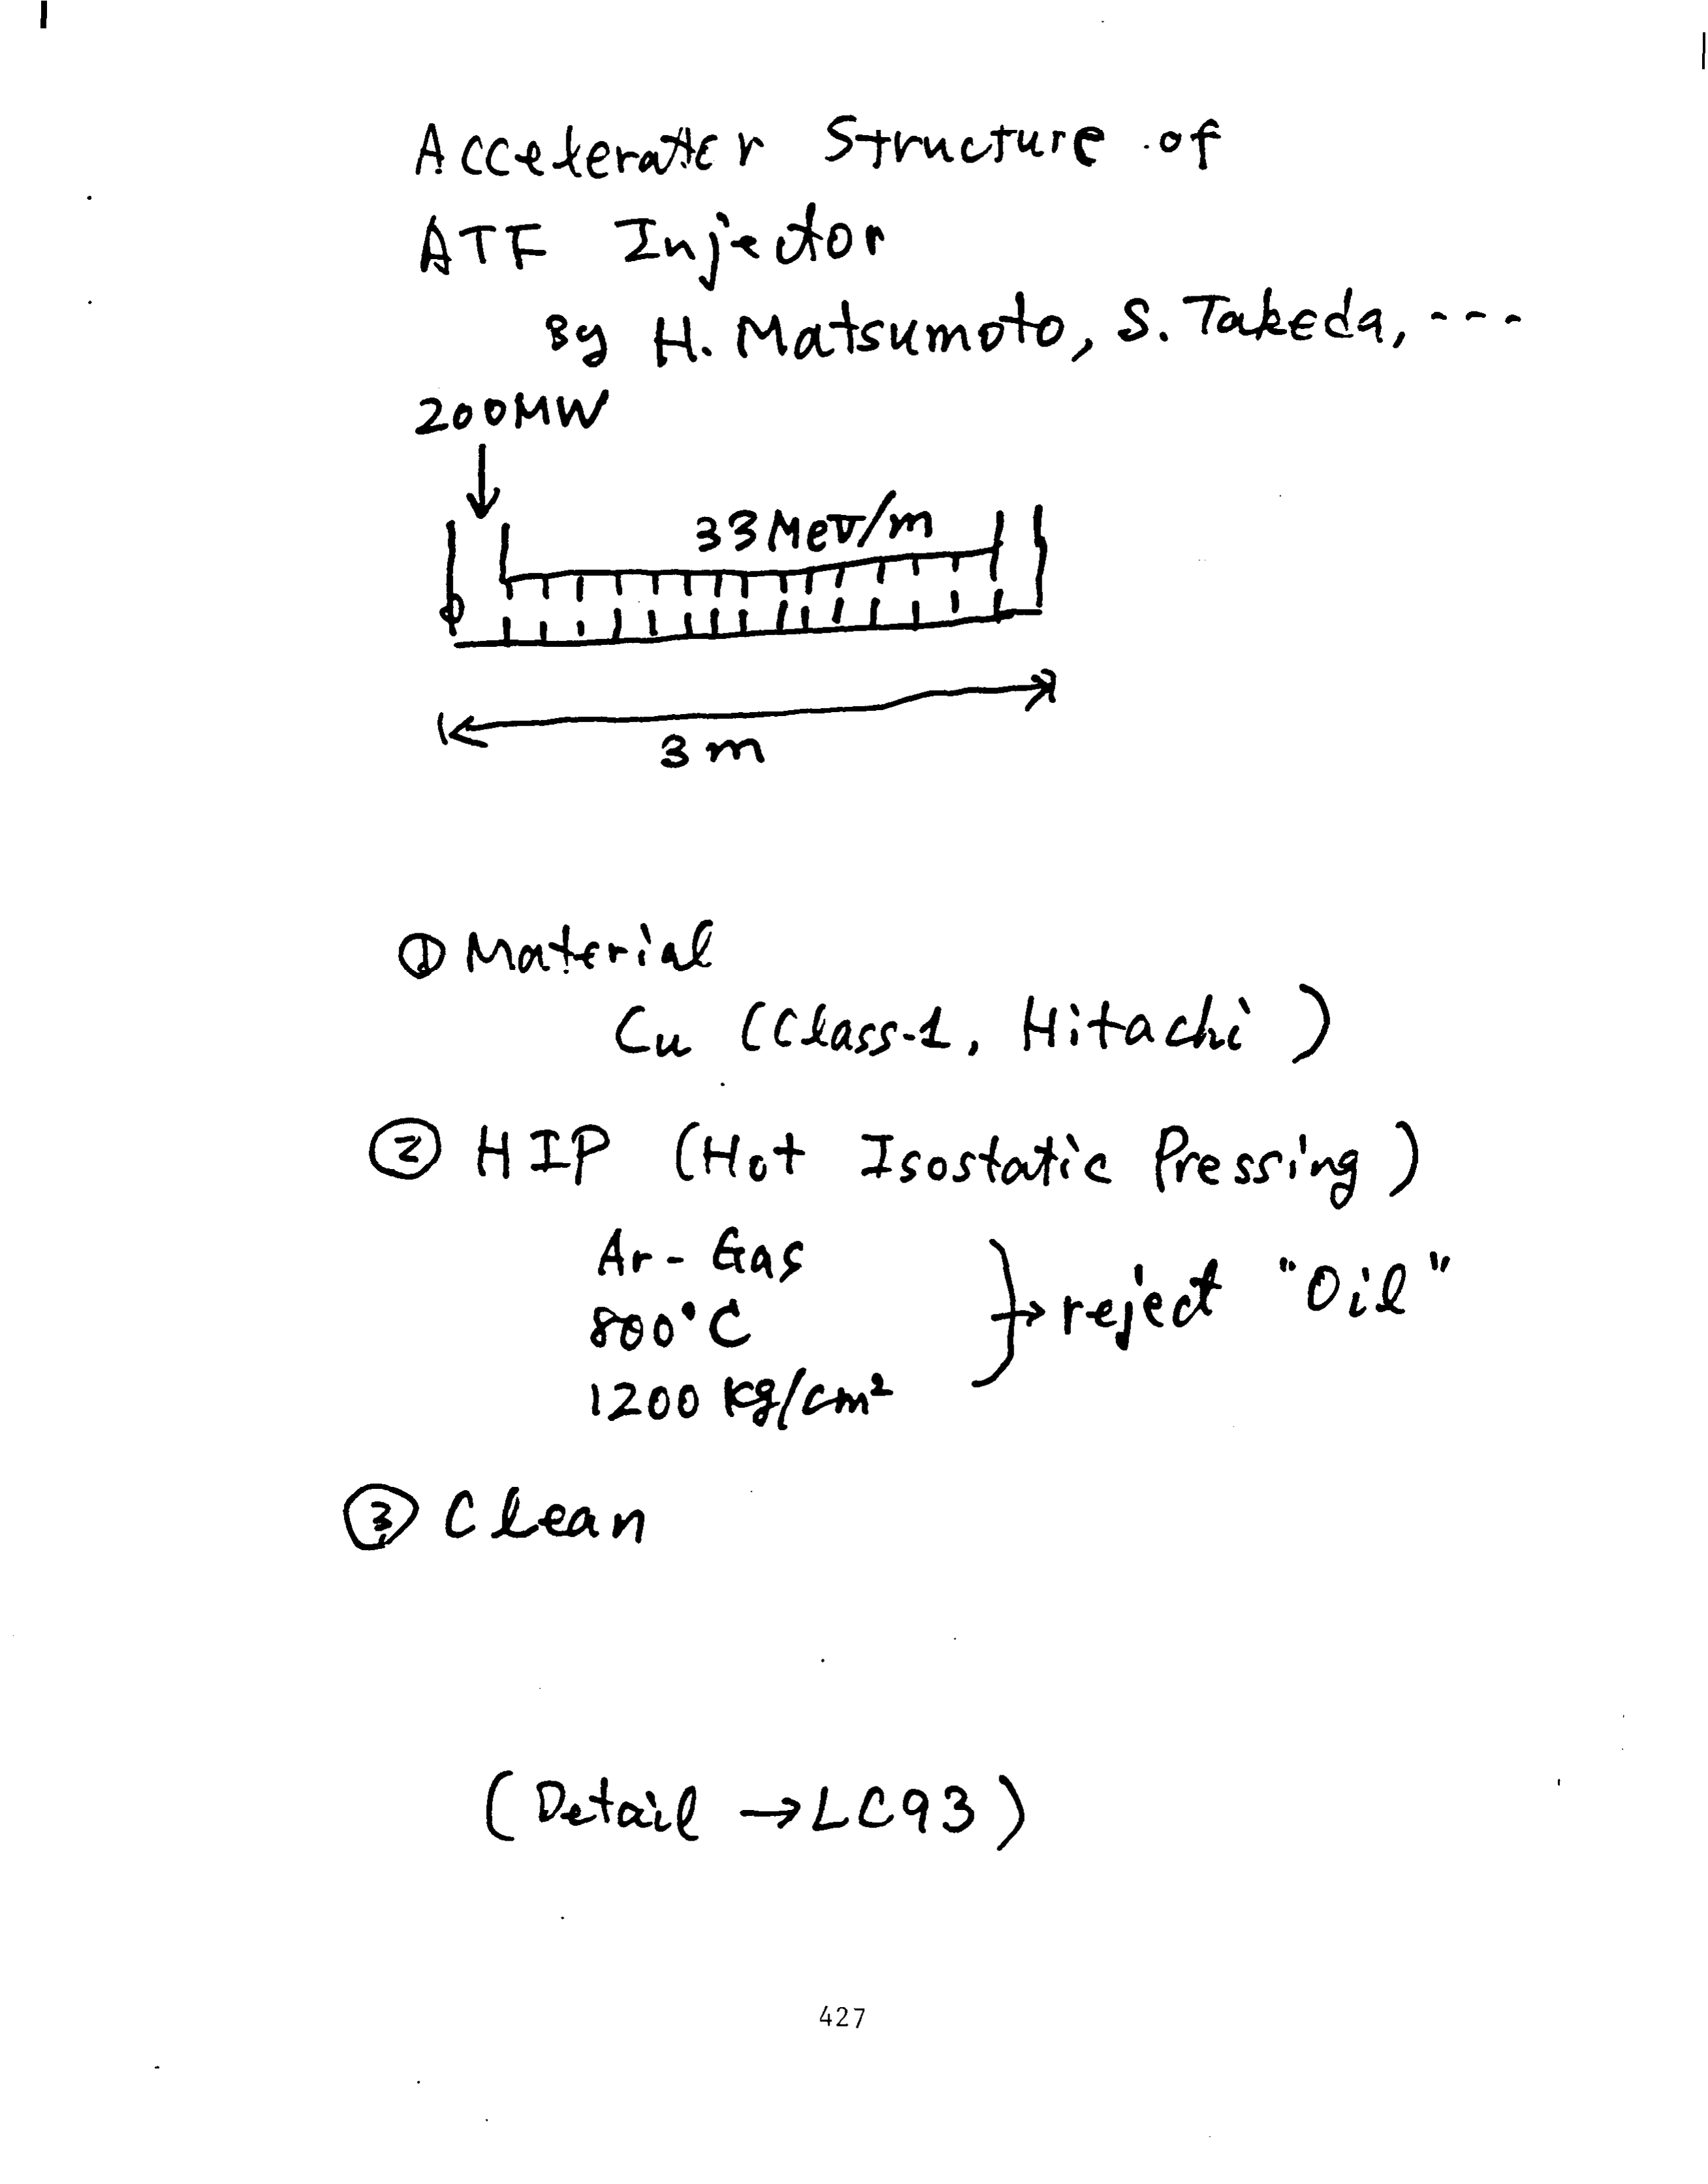 Accelerator Structure of
ATF Injector
By H. Matsumoto, S. Takeda, ---
200MW
33MeV/m
3m
① Material
Cu (Class-1, Hitachi)
② HIP (Hot Isostatic Pressing)
Ar-Gas
800°C
1200 kg/cm²
→ reject "Oil"
③ Clean
(Detail → LC93)
427